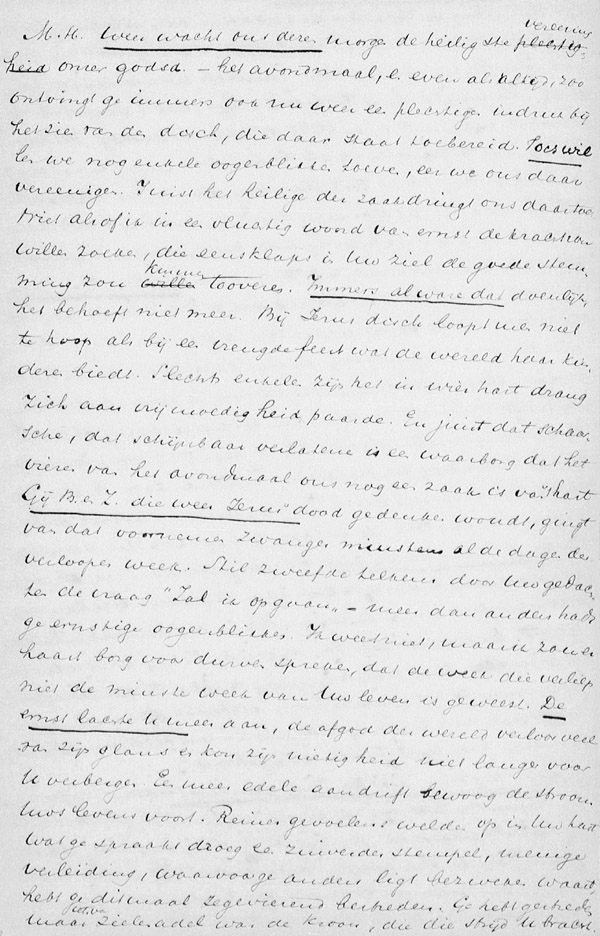 vereeniging
M.H. Weer wacht ons dezen morgen de heiligste plechtig-
heid onzer godsd. – het avondmaal, & even als altijd, zoo
ontvingt ge immers ook nu weer een plechtigen indruk bij
het zien van den disch, die daar staat toebereid. Toch wil
len we nog enkele oogenblikken toeven, eer we ons daar
vereenigen. Juist het heilige der zaak dringt ons daartoe
Niet alsof ik in een vluchtig woord van ernst de kracht van
willen zoeken, die eensklaps in Uw ziel de goede stem
kunnen
ming zou willen tooveren. Immers al ware dat doenlijk,
het behoeft niet meer. Bij Jezus disch loopt men niet
te hoop als bij een vreugdefeest wat de wereld haar kin
deren biedt. Slechts enkelen zijn het in wier hart drang
zich aan vrijmoedigheid paarde. En juist dat schaar
sche, dat schijnbaar verlatene is een waarborg dat het
vieren van het avondmaal ons nog een zaak is van 't hart
Gij B. e. Z. die weer Jezus' dood gedenken woudt, gingt
van dat voornemen zwanger minstens al de dagen der
verloopen week. Stil zweefde telkens door Uw gedach
ten de vraag "Zal ik opgaan" – meer dan anders hadt
ge ernstige oogenblikken. Ik weet niet, maar ik zou er
haast borg voor durven spreken, dat de week die verliep
niet de minste week van Uw leven is geweest. De
ernst lachte U meer aan, de afgod der wereld verloor veel
van zijn glans en kon zijn nietigheid niet langer voor
U verbergen. Een meer edele aandrift bewoog de stroom
Uws levens voort. Reiner gevoelens welden op in Uw hart
wat ge spraakt droeg een zuiverder stempel, menige
verleiding, waarvoor ge anders ligt bezweken waart,
hebt ge ditmaal zegevierend bestreden. Ge hebt gestreden
maar zieleadel was de kroon, die die strijd U bracht.